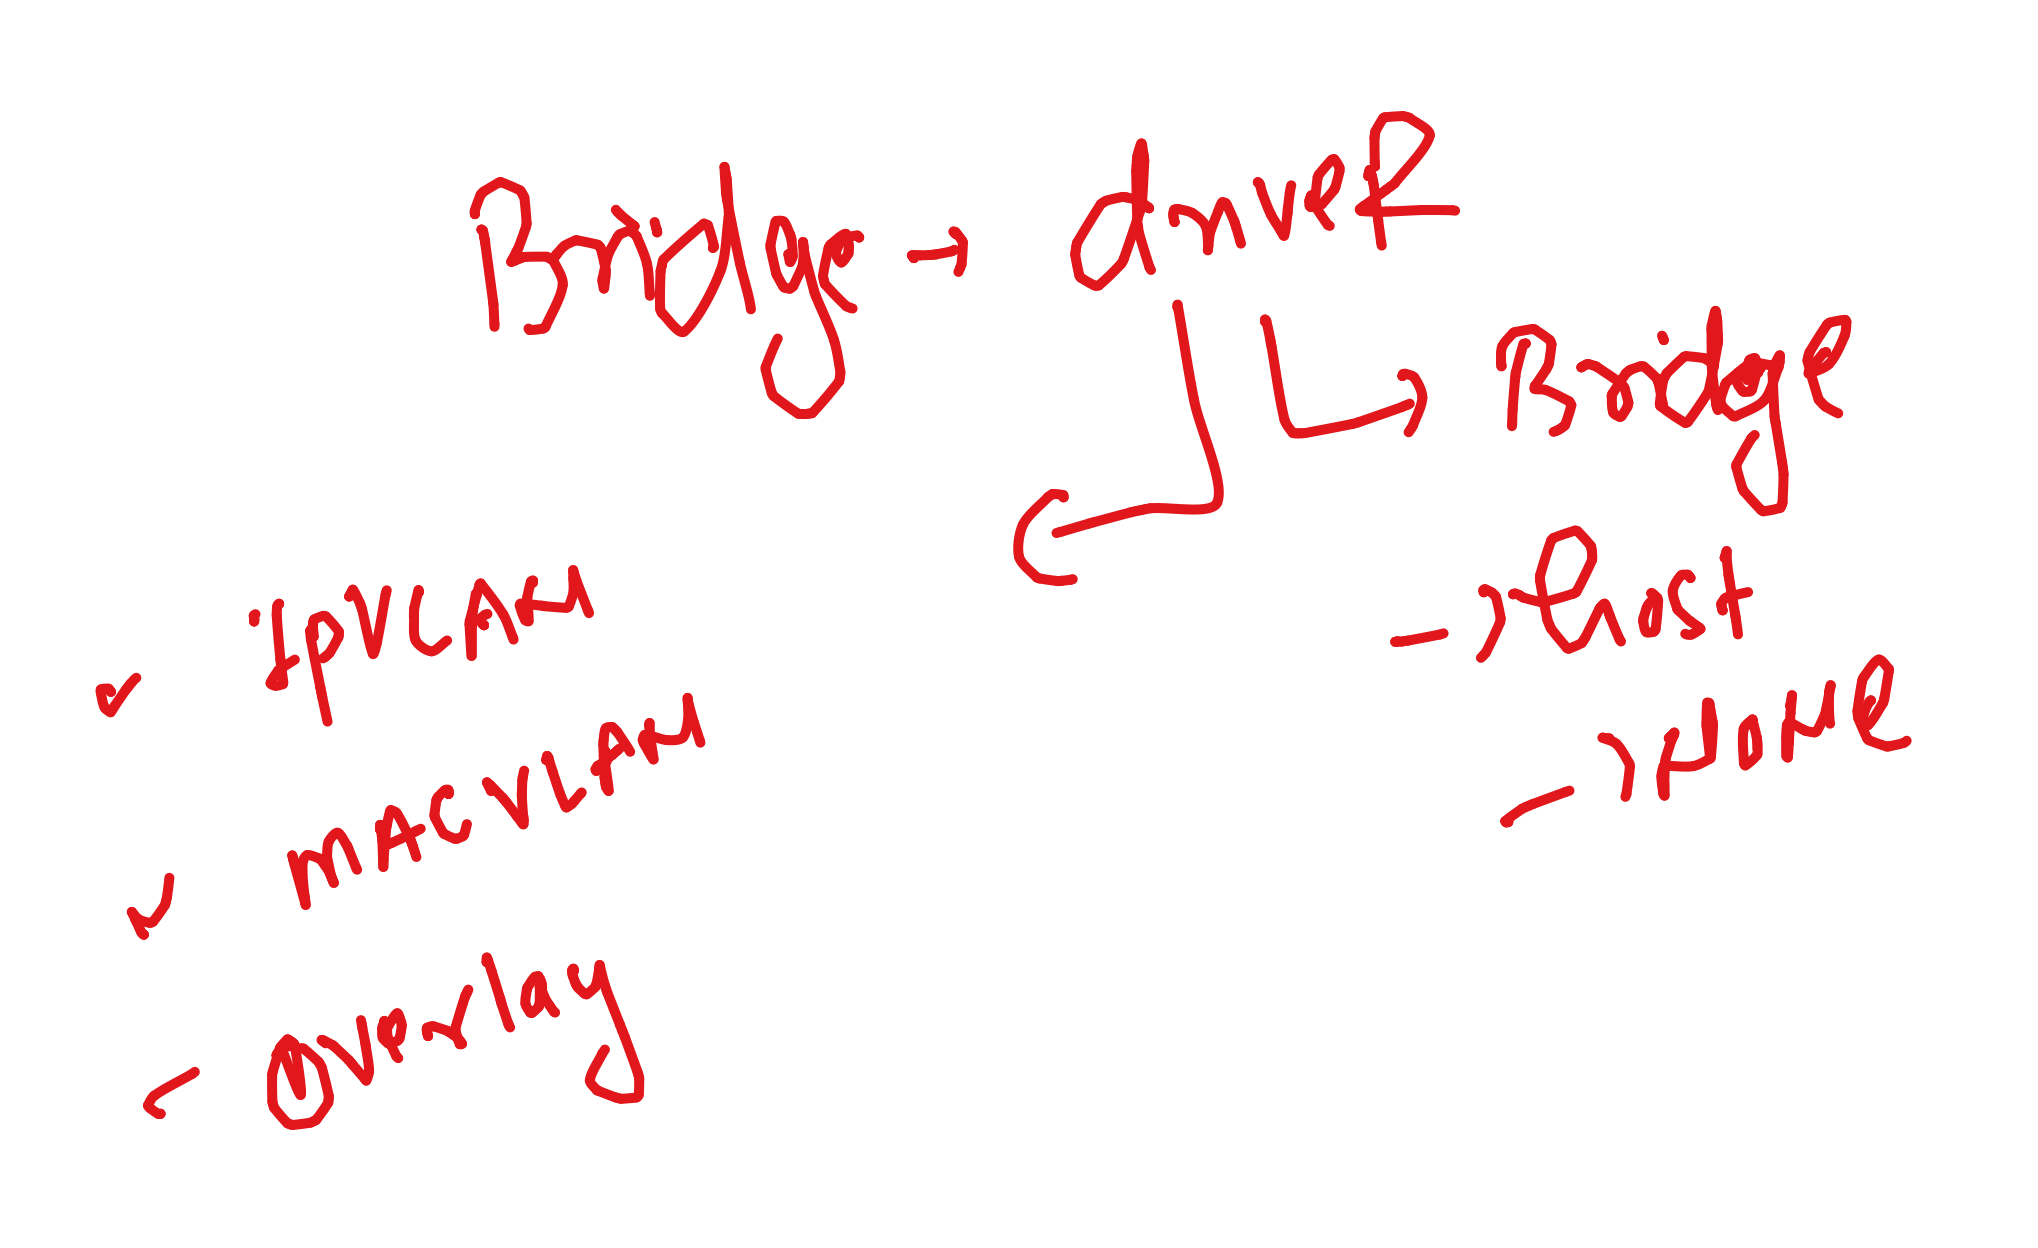 Bridge → driveR
→ Bridge
→ host
→ NONE
✓ IPVLAN
✓ MACVLAN
- Overlay